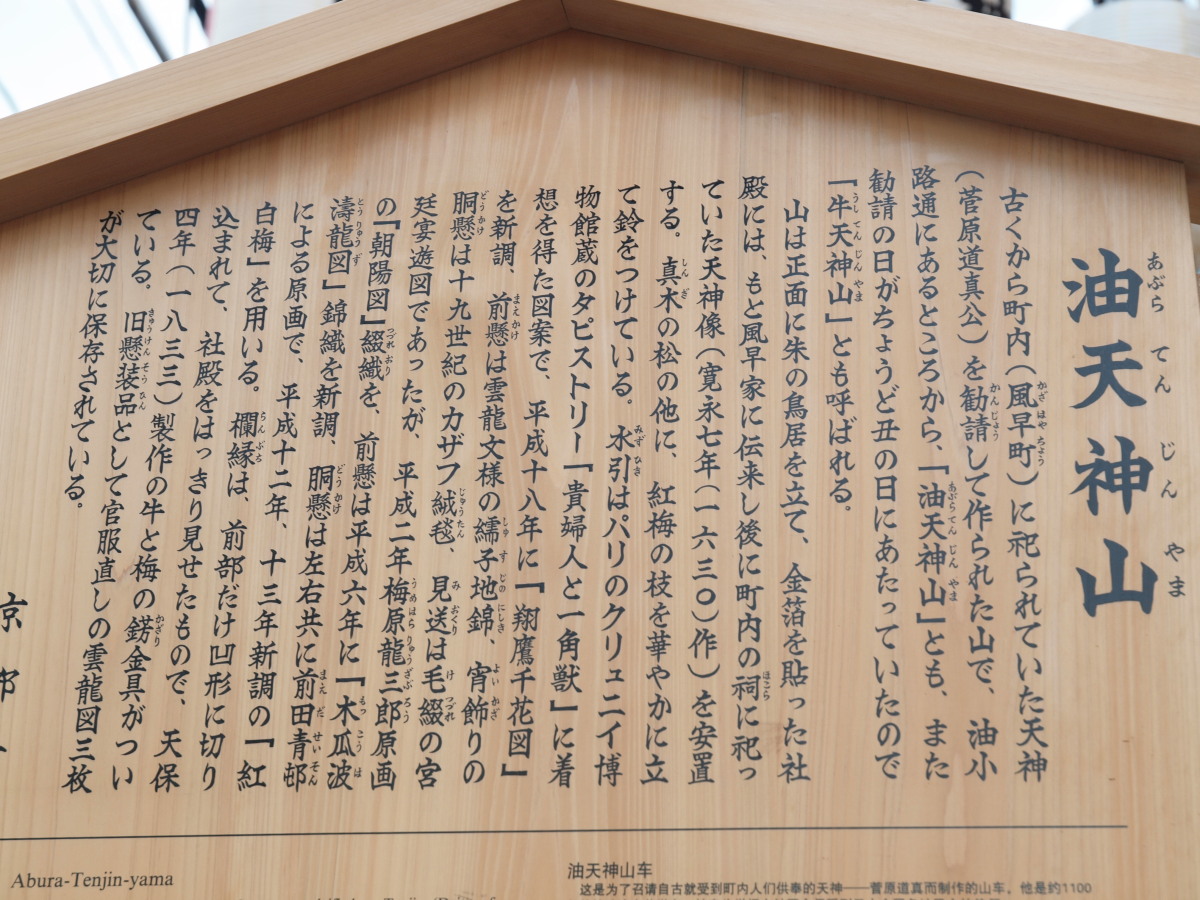 油天神山
古くから町内(風早町)に祀られていた天神
(菅原道真公)を勧請して作られた山で、油小
路通にあるところから、「油天神山」とも、また
勧請の日がちょうど丑の日にあたっていたので
「牛天神山」とも呼ばれる。
山は正面に朱の鳥居を立て、金箔を貼った社
殿には、もと風早家に伝来し後に町内の祠に祀っ
ていた天神像(寛永七年(一六三〇)作)を安置
する。真木の松の他に、紅梅の枝を華やかに立
て鈴をつけている。水引はパリのクリュニイ博
物館蔵のタピストリー「貴婦人と一角獣」に着
想を得た図案で、平成十八年に「翔鷹千花図」
を新調、前懸は雲龍文様の繻子地錦、宵飾りの
胴懸は十九世紀のカザフ絨毯、見送は毛綴の宮
廷宴遊図であったが、平成二年梅原龍三郎原画
の「朝陽図」綴織を、前懸は平成六年に「木瓜波
濤龍図」錦織を新調、胴懸は左右共に前田青邨
による原画で、平成十二年、十三年新調の「紅
白梅」を用いる。欄縁は、前部だけ凹形に切り
込まれて、社殿をはっきり見せたもので、天保
四年(一八三三)製作の牛と梅の錺金具がつい
ている。旧懸装品として官服直しの雲龍図三枚
が大切に保存されている。
京
Abura-Tenjin-yama
油天神山车
这是为了召请自古就受到町内人们供奉的天神——菅原道真而制作的山车，他是约1100